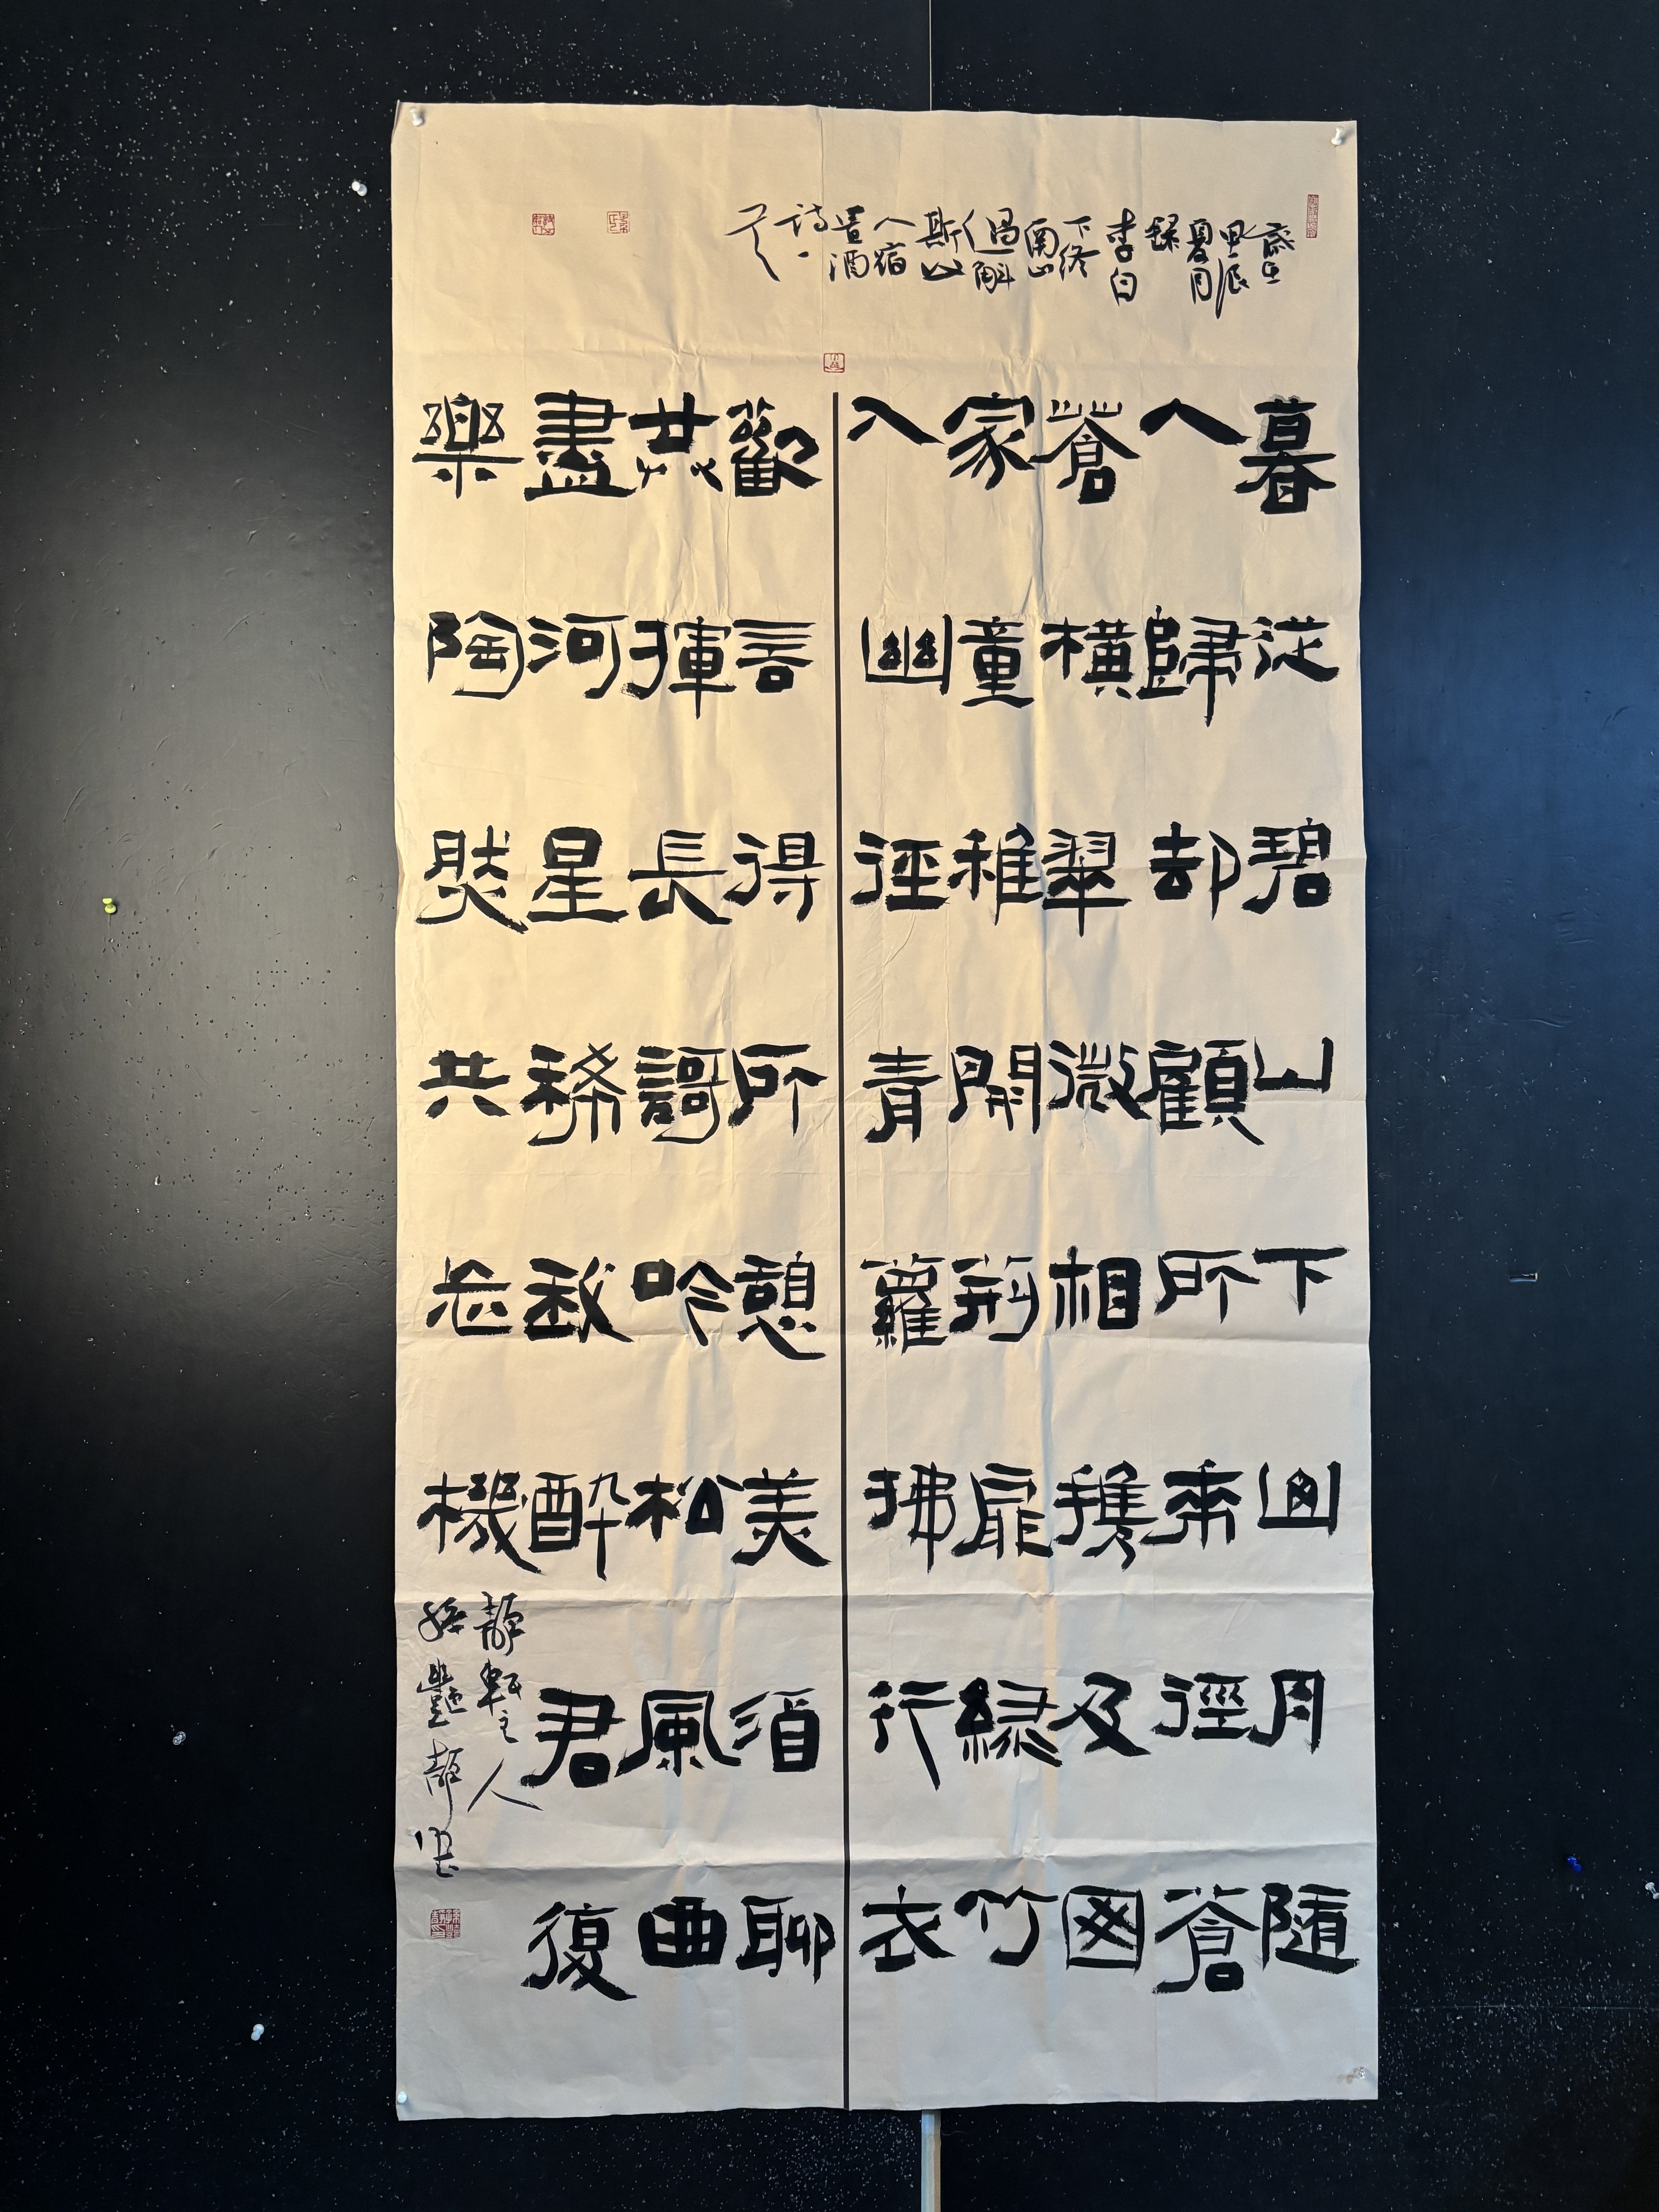 歲在
甲辰
夏月
錄
李白
下終
南山
過斛
斯山
人宿
置酒
詩一
暮從碧山下山月隨
人歸却顧所來徑蒼
蒼橫翠微相攜及田
家童稚開荊扉綠竹
入幽徑青蘿拂行衣
歡言得所憩美酒聊
共揮長謌吟松風曲
盡河星稀我醉君復
樂陶然共忘機
靜軒主人
孫豔靜書